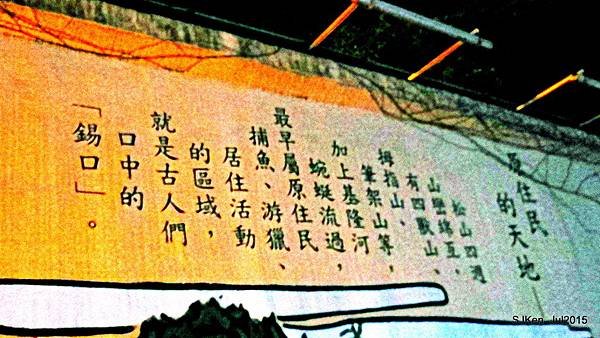 原住民
的天地—
松山四週
山巒綿亙，
有四獸山、
拇指山、
筆架山等，
加上基隆河
蜿蜒流過，
最早屬原住民
捕魚、游獵、
居住活動
的區域，
就是古人們
口中的
「錫口」。
SJKen Jul2015